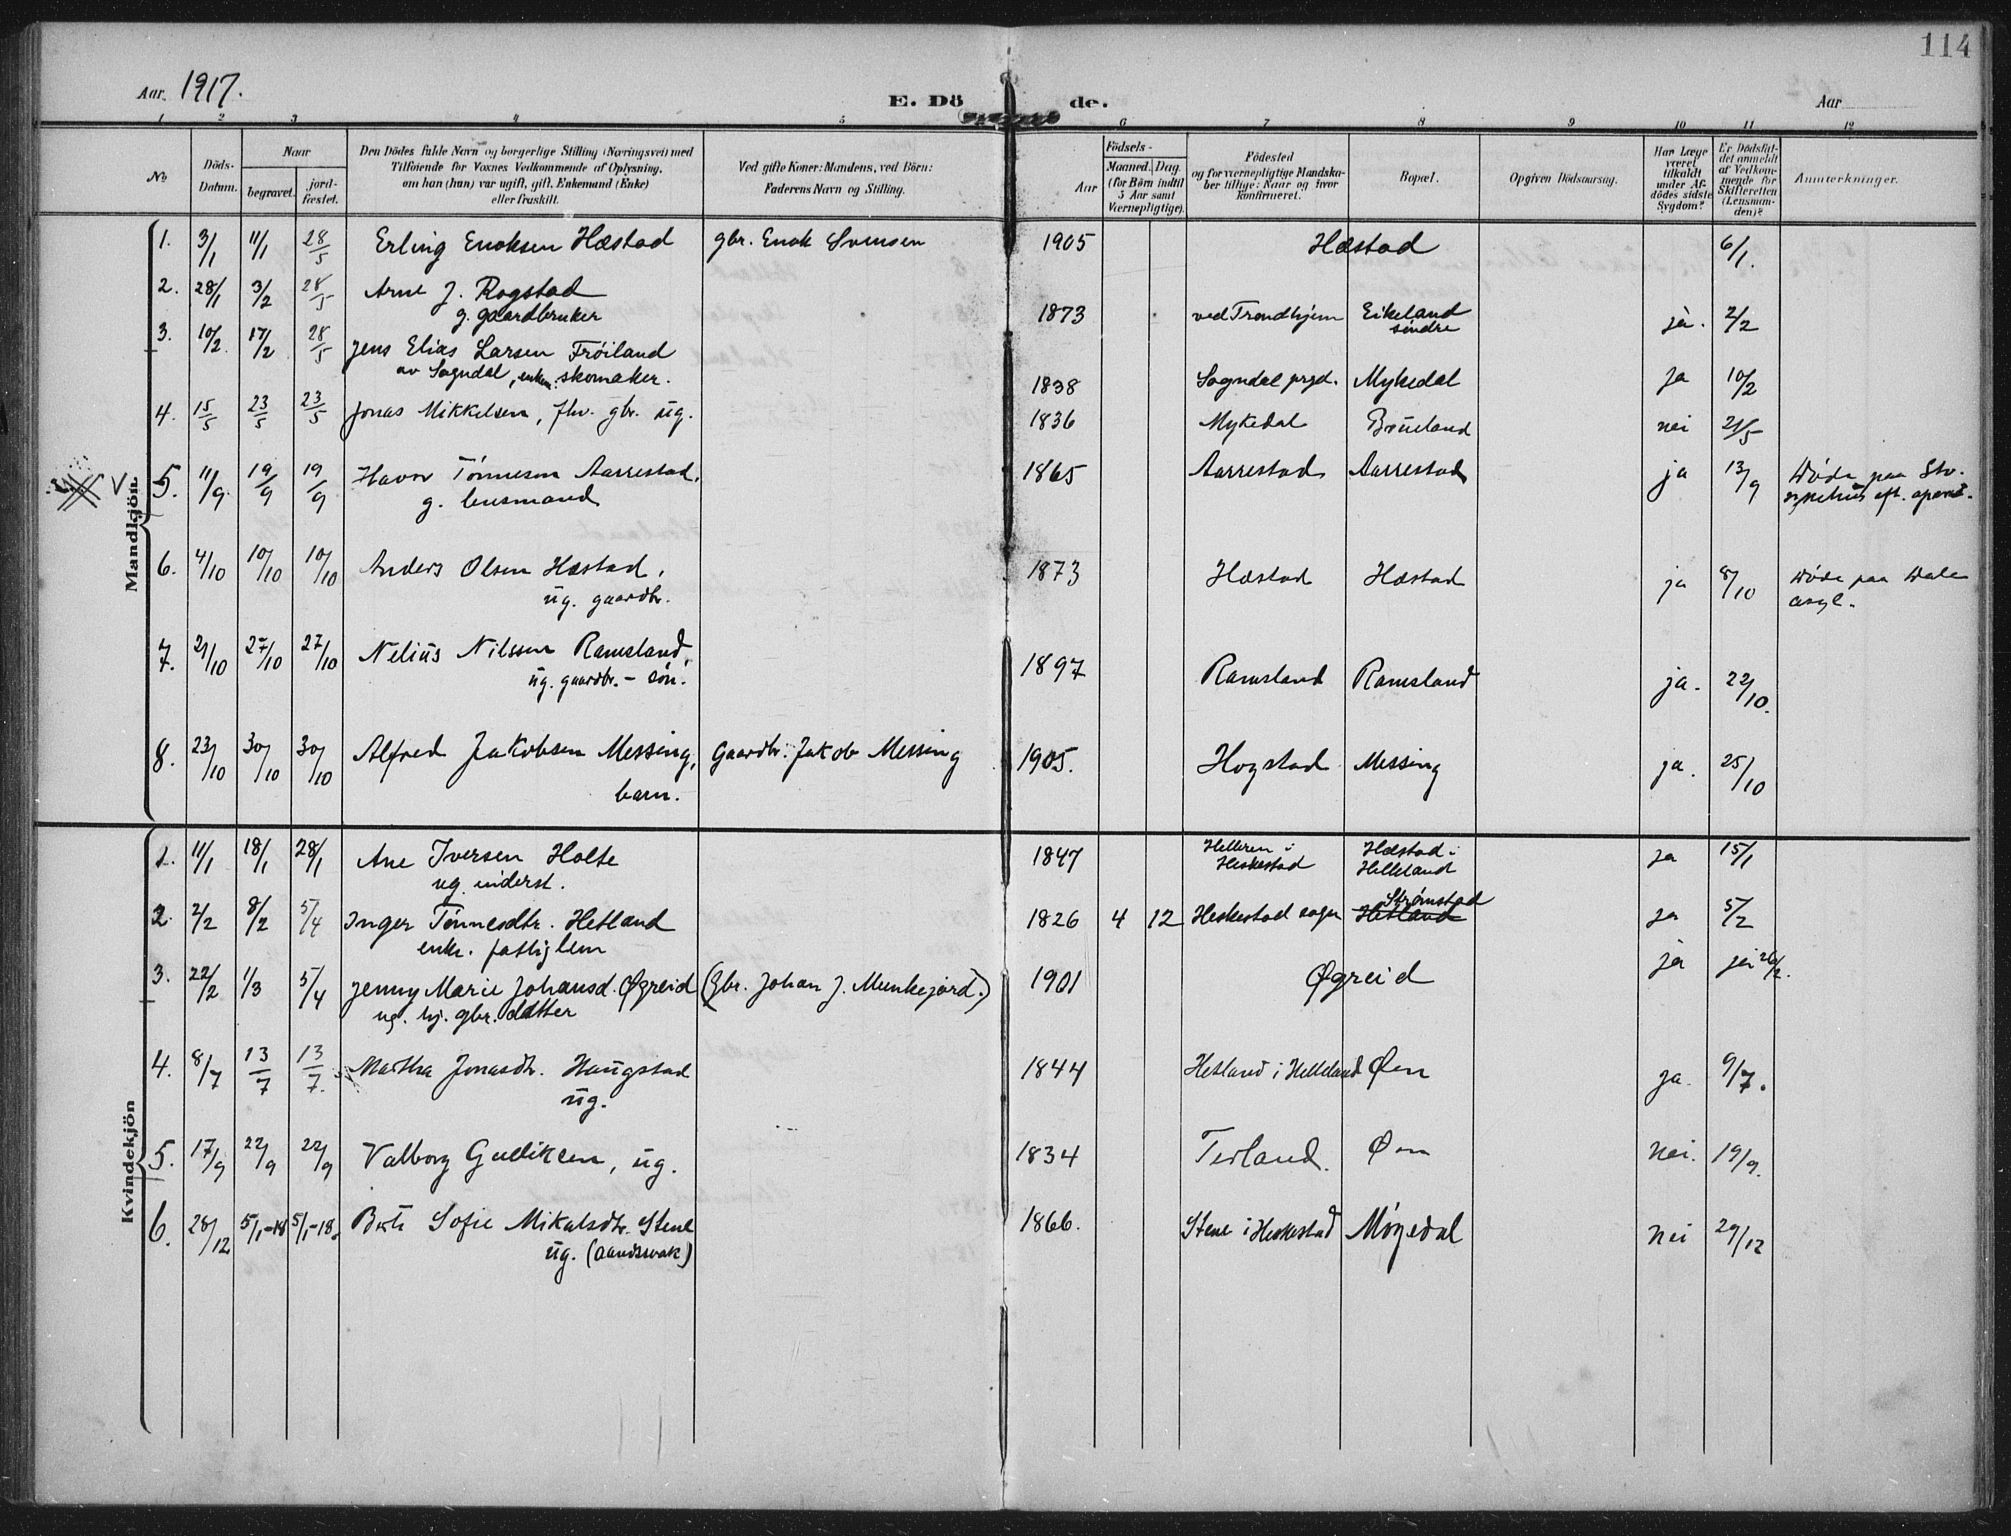 114
Aar 1917.
E. Dö de.
Aar
1 2 3 4 5 6 7 8 9 10 11 12
No
Döds-Datum.
Naar
begravet.
jord-fæstet.
Den Dödes fulde Navn og borgerlige Stilling (Næringsvei) med
Tilföiende for Voxnes Vedkommende af Oplysning,
om han (hun) var ugift, gift, Enkemand (Enke)
eller fraskilt.
Ved gifte Koner: Mandens, ved Börn:
Faderens Navn og Stilling.
Aar
Födsels-
Maaned. Dag.
(for Börn indtil
5 Aar samt
Værnepligtige).
Födested
og for værnepligtige Mandska-
ber tillige: Naar og hvor
konfirmeret.
Bopæl.
Opgiven Dödsaarsag.
Har Læge
været
tilkaldt
under Af-
dödes sidste
Sygdom?
Er Dödsfal-
det anmeldt
af Vedkom-
mende for
Skifteretten
(Lensman-
den)?
Anmærkninger.
Mandkjön.
1. 3/1 11/1 28/5 Erling Enoksen Hæstad gbr. Enok Svensen 1905 Hæstad 6/1.
2. 28/1 3/2 28/5 Arne J. Rogstad
g. gaardbruker 1873 ved Trondhjem Eikeland
søndre ja. 2/2
3. 10/2 17/2 28/5 Jens Elias Larsen Frøiland
av Sogndal, enkem. skomaker. 1838 Sogndal prgd. Mykedal ja 10/2
4. 15/5 23/5 23/5 Jonas Mikkelsen, fhv. gbr. ug. 1836 Mykedal Brueland nei 21/5
V 5. 11/9 19/9 19/9 Havor Tønnesen Aarrestad,
g. lensmand 1865 Aarrestad Aarrestad ja 13/9 Døde paa Stv.
sykehus eft. operat.
6. 4/10 10/10 10/10 Anders Olsen Hæstad,
ug. gaardbr. 1873 Hæstad Hæstad ja 8/10 Døde paa Dale
asyl.
7. 21/10 27/10 27/10 Nelius Nilssen Ramsland,
ug. gaardbr. - søn. 1897 Ramsland Ramsland ja. 22/10.
8. 23/10 30/10 30/10 Alfred Jakobsen Messing,
barn. Gaardbr. Jakob Messing 1905. Hogstad Messing ja. 25/10
Kvindekjön
1. 11/1 18/1 28/1 Ane Iversen Holte
ug. inderst. 1847 Helleren i
Heskestad Hæstad i
Helleland ja 15/1
2. 2/2 8/2 5/4 Inger Tønnesdtr. Hetland
enke. fattiglem 1826 4 12 Heskestad sogn Strømstad
Hetland ja 5/2
3. 22/2 1/3 5/4 Jenny Marie Johansd. Øgreid
ug. hj. gbr. datter (Gbr. Johan J. Munkejord.) 1901 Øgreid ja ja 26/2.
4. 8/7 13/7 13/7. Martha Jonasdtr. Haugstad
ug. 1844 Hetland i Helleland Øen ja. 9/7.
5. 17/9 22/9 22/9 Valborg Gulliksen, ug. 1834 Terland. Øen nei. 19/9.
6. 28/12 5/1-18 5/1-18. Berte Sofie Mikalsdtr. Stene
ug. (aandssvak) 1866. Stene i Heskestad Møgedal nei 29/12